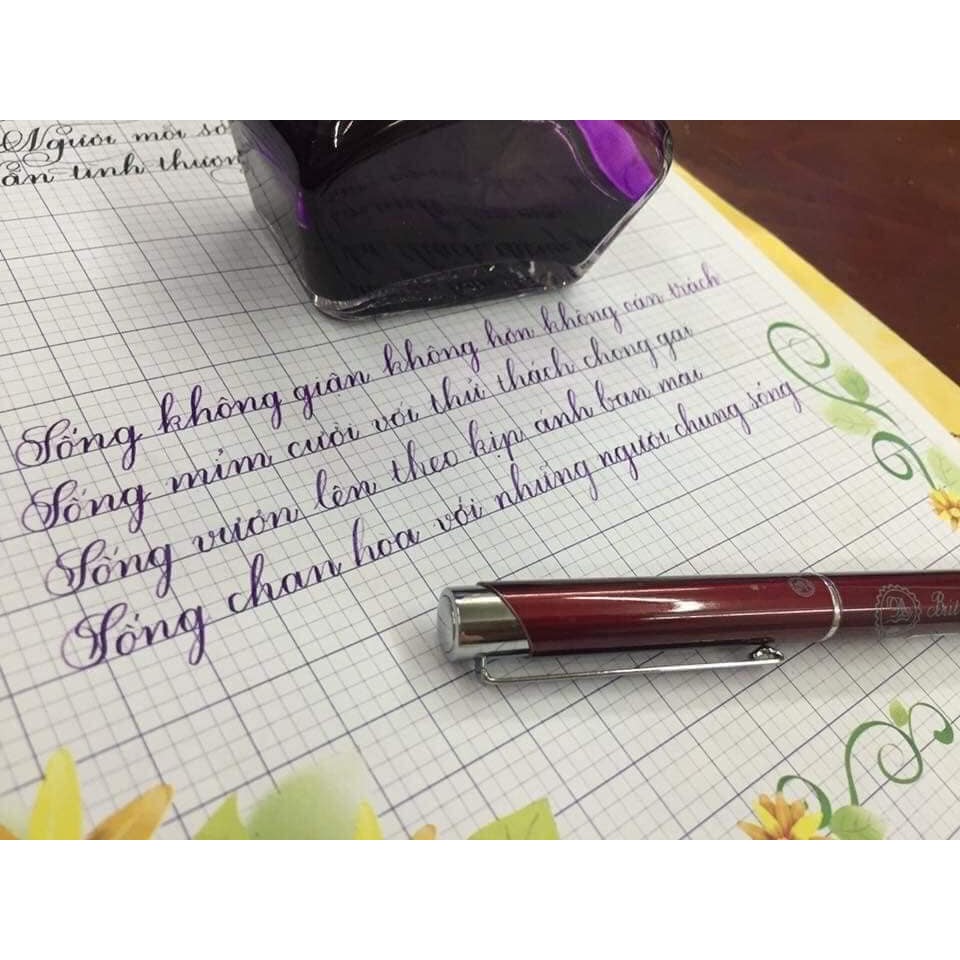 Người mới số
ẩn tình thương
Sống không giận không hờn không oán trách
Sống mỉm cười với thử thách chông gai
Sống vươn lên theo kịp ánh ban mai
Sống chan hoà với những người chung sống